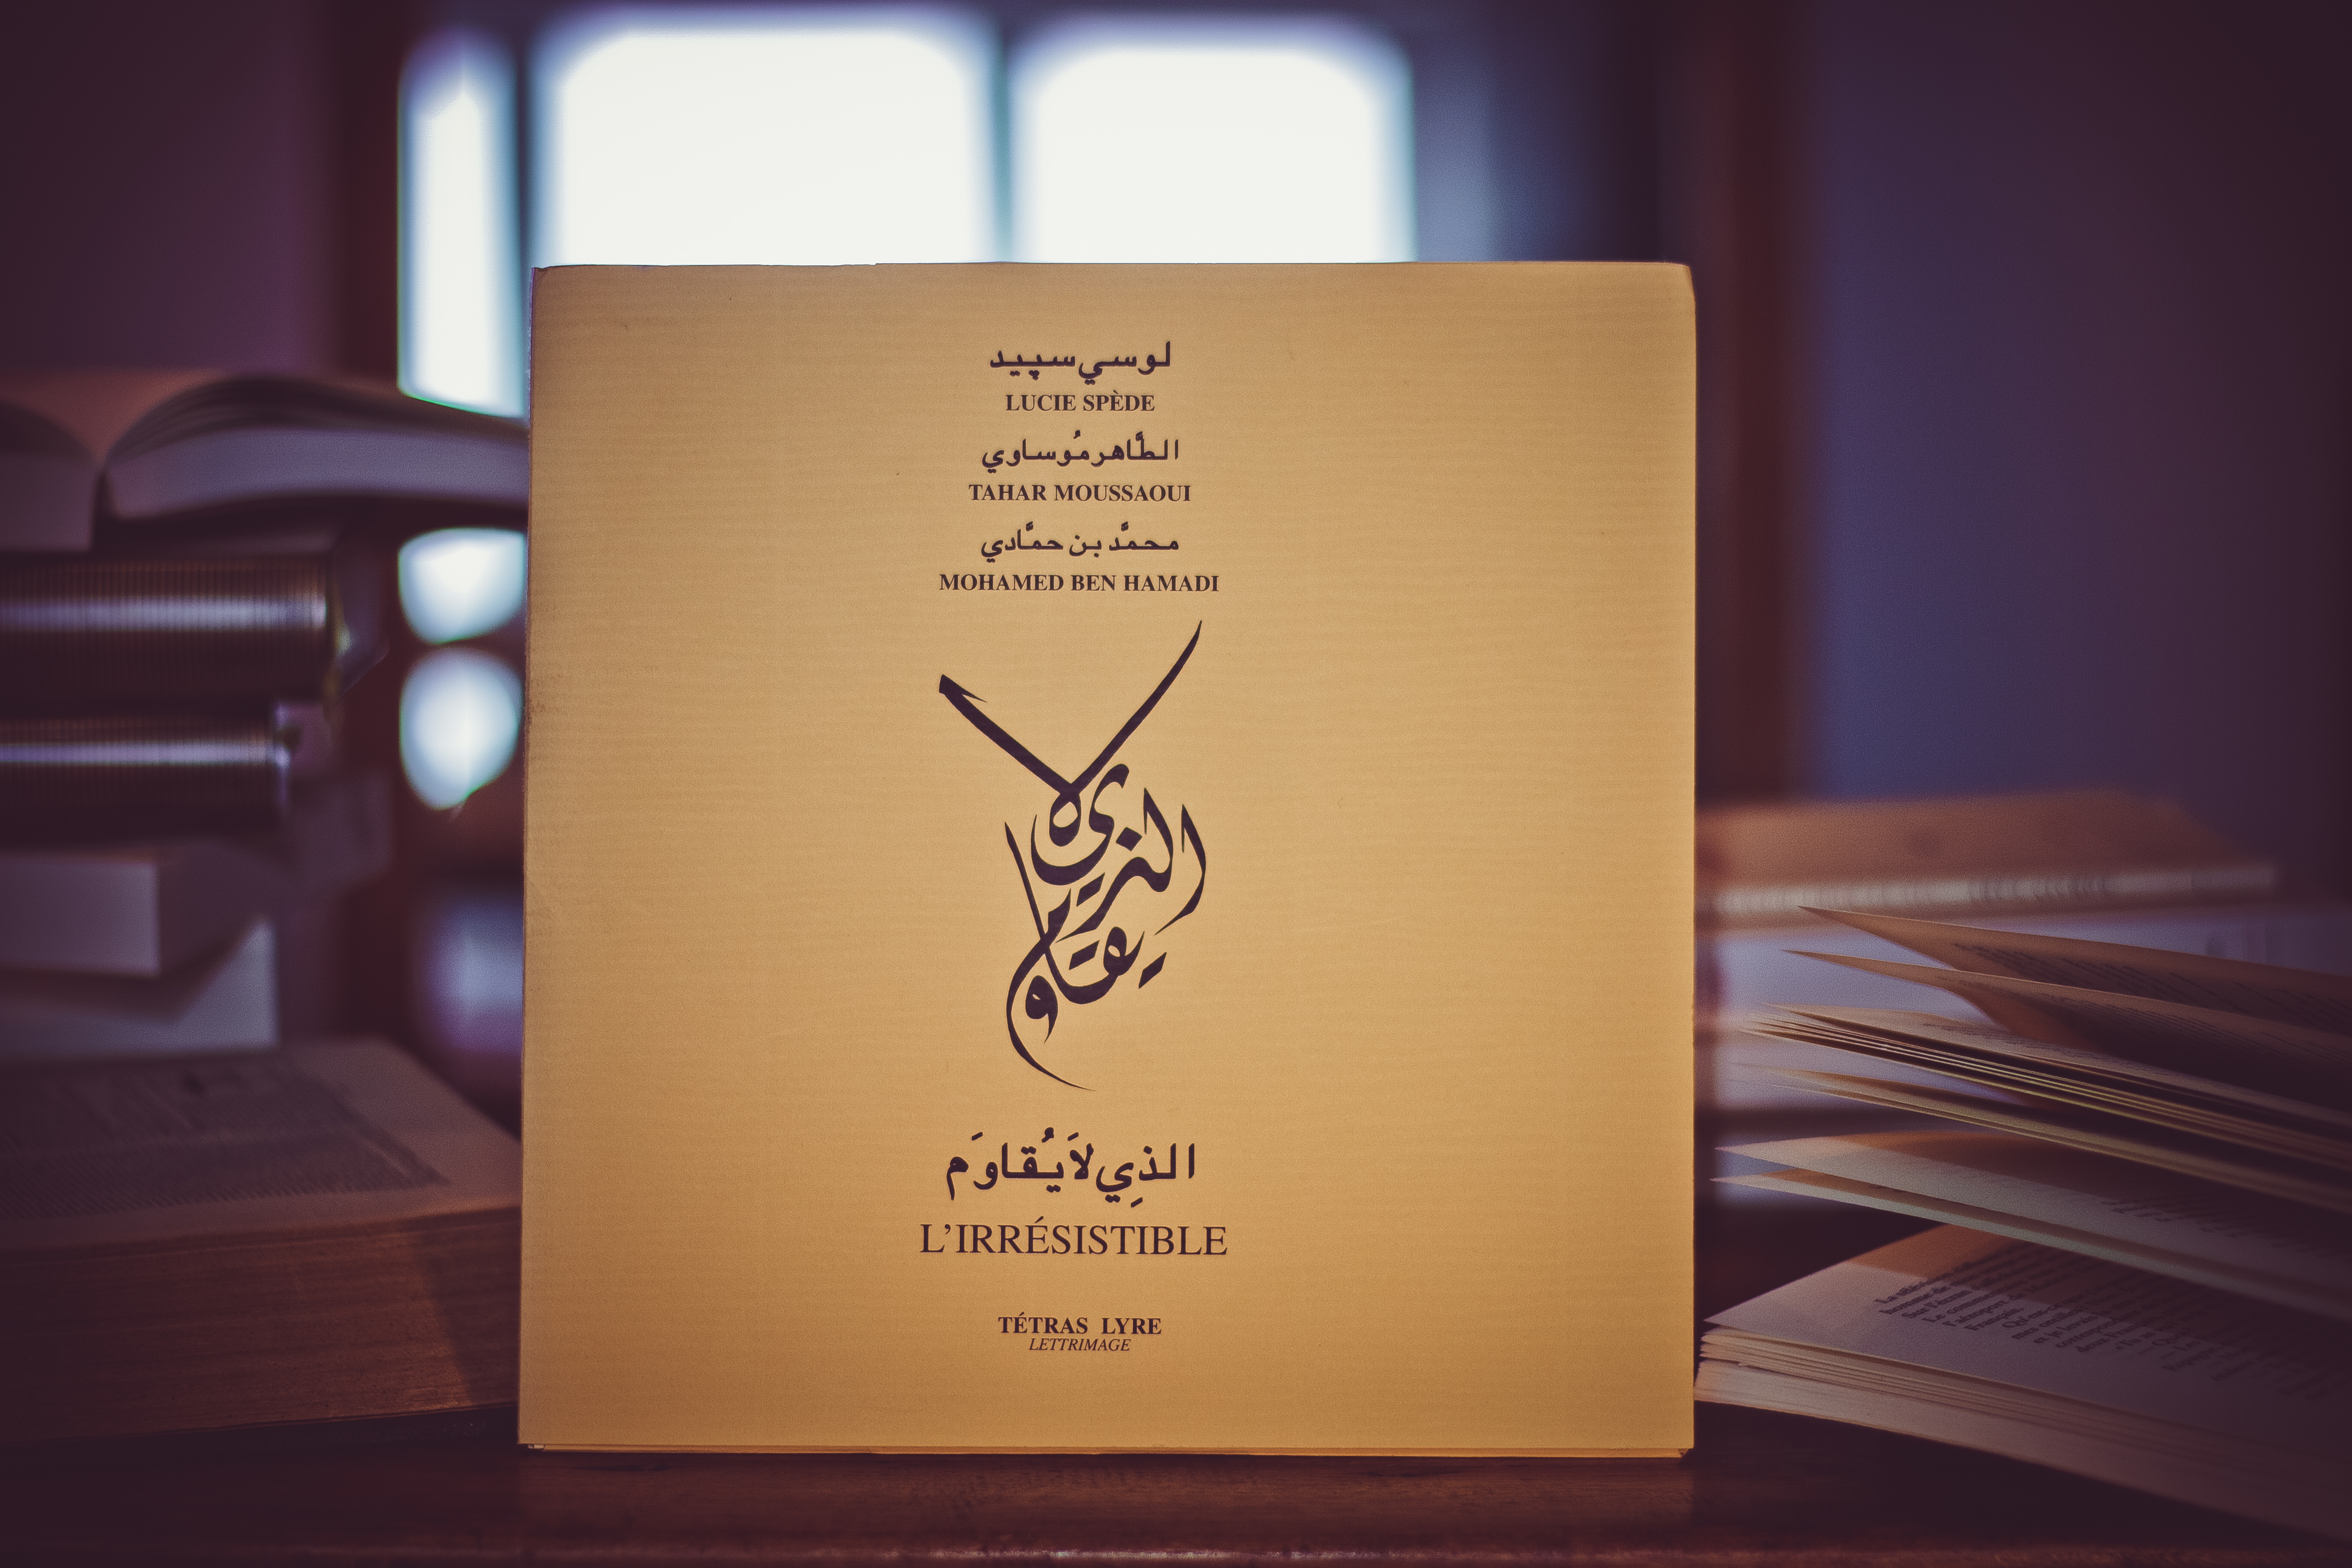 لوسي سپيد
LUCIE SPÈDE
الطَّاهر مُوساوي
TAHAR MOUSSAOUI
محمَّد بن حمَّادي
MOHAMED BEN HAMADI
الذي لا
يقاوم
الذِي لاَ يُقاوَم
L'IRRÉSISTIBLE
TÉTRAS LYRE
LETTRIMAGE